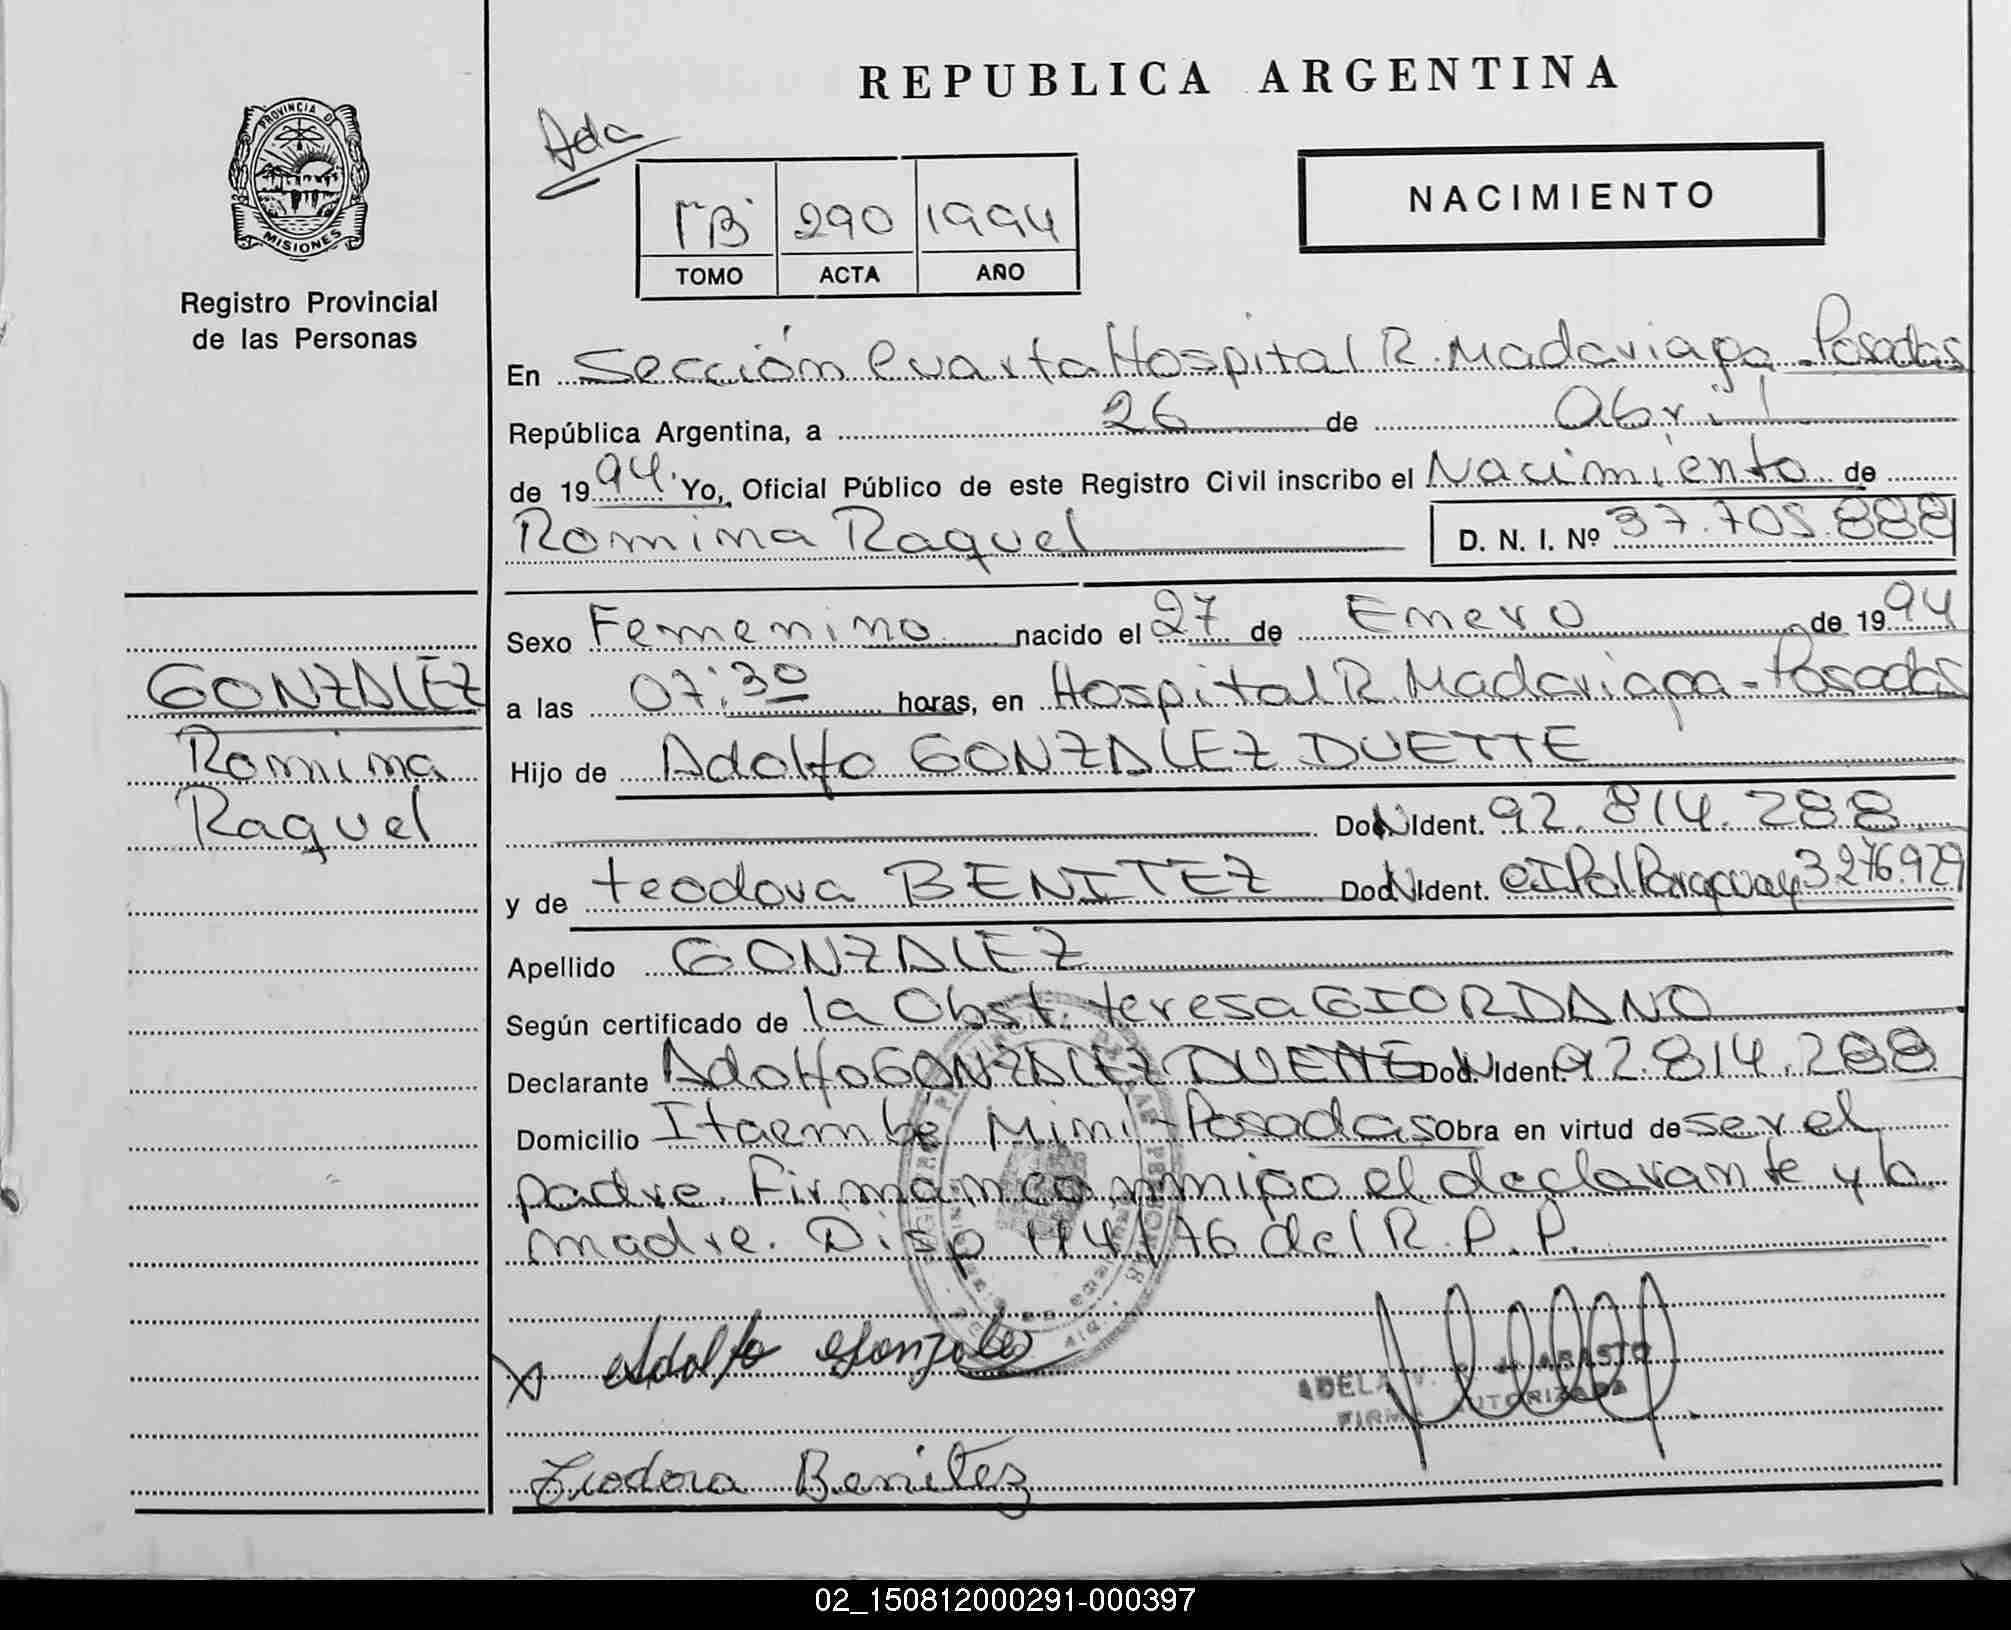 REPUBLICA ARGENTINA
PROVINCIA DE
MISIONES
Registro Provincial
de las Personas
Ada
1994
290
TOMO ACTA AÑO
NACIMIENTO
En Sección Cuarta Hospital R. Madariaga - Posadas
República Argentina, a 26 de Abril
de 1994. Yo, Oficial Público de este Registro Civil inscribo el Nacimiento de
Romina Raquel D. N. I. Nº 37.705.888
Sexo Femenino nacido el 27 de Enero de 1994
GONZALEZ
Romina
Raquel
a las 07:30 horas, en Hospital R. Madariaga - Posadas
Hijo de Adolfo GONZALEZ DUETTE
Doc N Ident. 92.814.288
y de teodora BENITEZ Doc N Ident. C I Pol Paraguay 3.276.929
Apellido GONZALEZ
Según certificado de la Obst. teresa GIORDANO
Declarante Adolfo GONZALEZ DUETTE Doc N Ident. 92.814.288
Domicilio Itaembé Mini - Posadas Obra en virtud de ser el
padre. Firman conmigo el declarante y la
madre. Disp 114/76 del R. P. P.
Adolfo Gonzalez
ADELA V.
FIRMA AUTORIZADA
Teodora Benitez
02_150812000291-000397